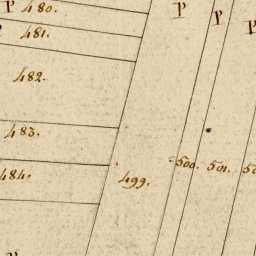 P 480. P P P
481.
482.
483.
484. 499. 500. 501.